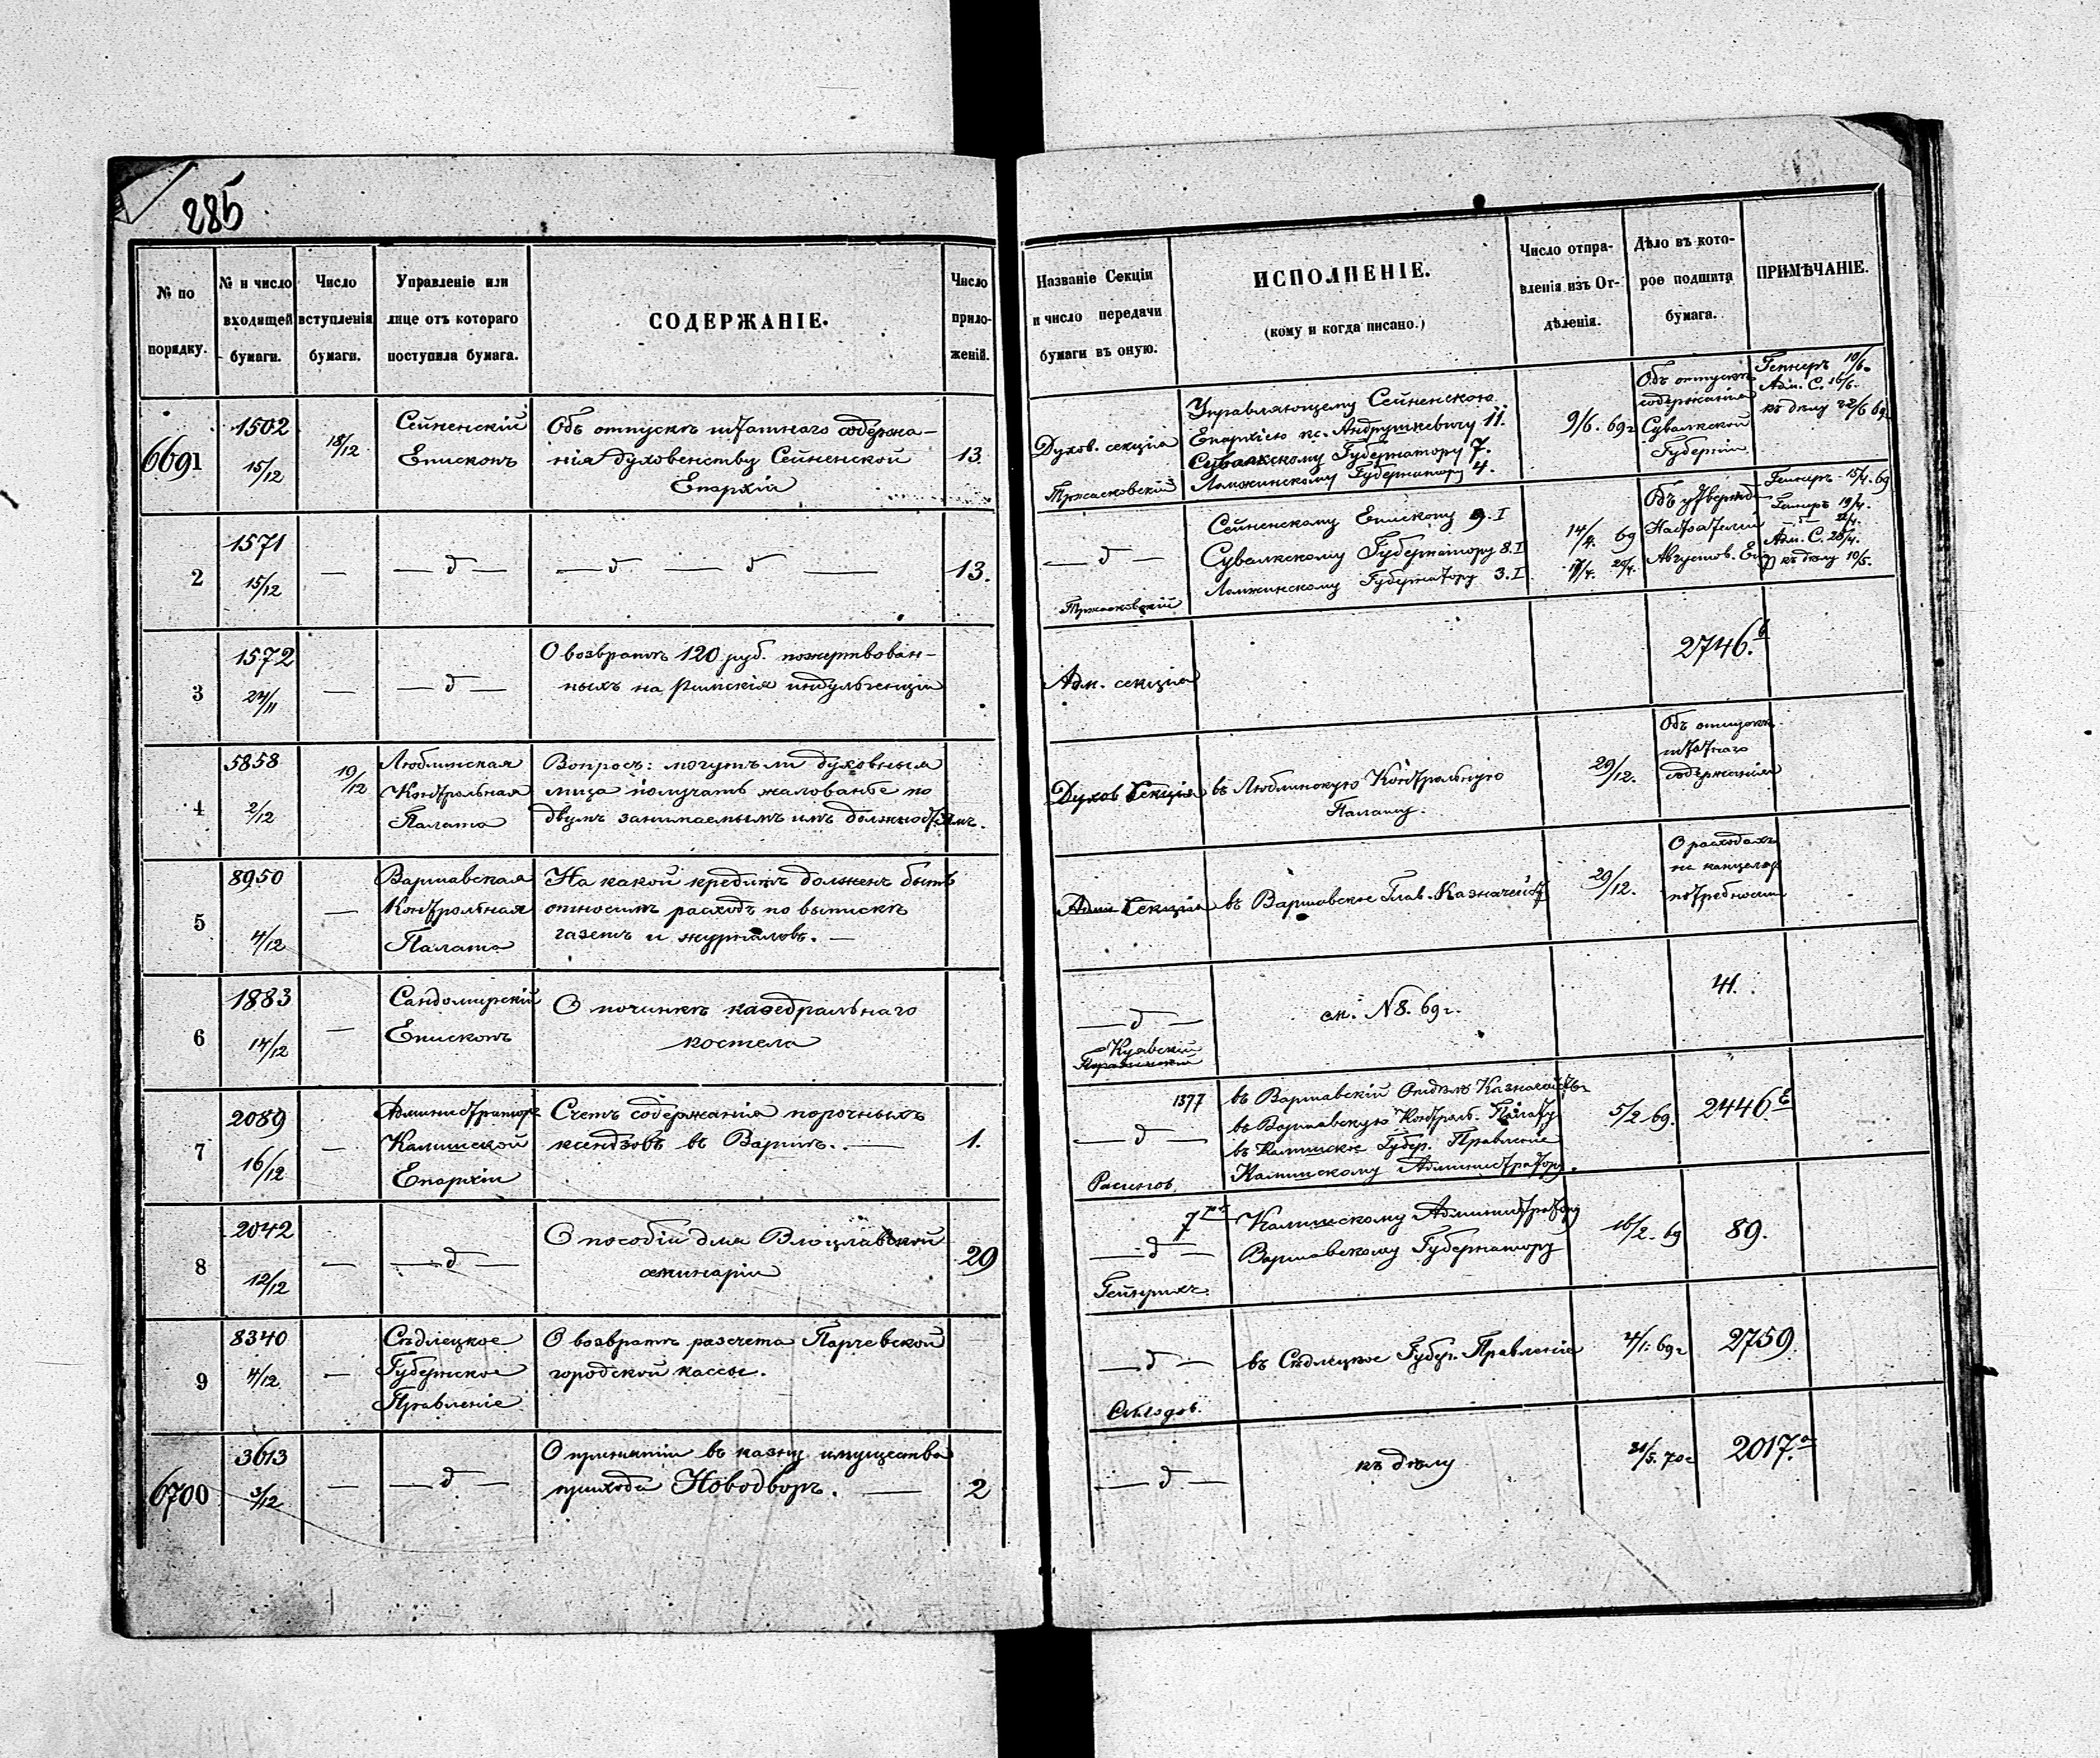 285
№ по порядку.
№ и число входящей бумаги.
Число вступленія бумаги.
Управленіе или лице отъ котораго поступила бумага.
СОДЕРЖАНІЕ.
Число прило-женій.
Названіе Секціи и число передачи бумаги въ оную.
ИСПОЛНЕНІЕ.
(кому и когда писано.)
Число отпра-вленія изъ От-дѣленія.
Дѣло въ кото-рое подшита бумага.
ПРИМѢЧАНІЕ.
6691
1502
15/12
18/12
Сейненскій
Епископъ
Объ отпускѣ штатнаго содержа-
нія духовенству Сейненской
Епархіи
13.
Духов. секція
Управляющему Сейненскою
Епархіею кс. Андрушкевичу 11.
Сувалкскому Губернатору 7.
Ломжинскому Губернатору 4.
9/6. 69г
Объ отпускѣ
содержанія
Сувалкской
Губерніи
10/6.
Адм. С. 16/6.
къ дѣлу 22/6 69г
2
1571
15/12
—
— д —
— д — д —
13.
— д —
Сейненскому Епископу 9.I
Сувалкскому Губернатору 8.I
Ломжинскому Губернатору 3.I
14/4. 69
Объ утвержд.
Августов. Еп.
15/4. 69
19/4.
— д — 22/4.
Адм. С. 28/4.
къ дѣлу 10/5.
3
1572
24/11
—
— д —
О возвратѣ 120 руб. пожертвован-
ныхъ на Римскія индульгенціи
Адм. секція
2746.
4
5858
2/12
19/12
Люблинская
Контрольная
Палата
Вопросъ: могутъ ли духовныя
лица получать жалованье по
двумъ занимаемымъ имъ должностямъ.
Духов Секція
въ Люблинскую Контрольную
Палату.
29/12.
Объ отпускѣ
штатнаго
содержанія
5
8950
4/12
—
Варшавская
Контрольная
Палата
На какой кредитъ долженъ быть
относимъ расходъ по выпискѣ
газетъ и журналовъ. —
Адм Секція
въ Варшавское Глав. Казначейст
29/12.
О расходахъ
на канцеляр
потребности
6
1883
14/12
—
Сандомирскій
Епископъ
О починкѣ каѳедральнаго
костела
— д —
Куявскій
см. № 8. 69г.
41.
7
2089
16/12
—
Администраторъ
Калишской
Епархіи
Счетъ содержанія порочныхъ
ксендзовъ въ Вартѣ. —
1.
1377
— д —
въ Варшавскій Отдѣлъ Казначейства
въ Варшавскую Контроль. Палату
въ Калишское Губер. Правленіе
Калишскому Администратору.
5/2 69.
2446
8
2042
12/12
—
— д —
О пособіи для Влоцлавской
семинаріи
29
— д —
Гейнрихъ
Калишскому Администратору
Варшавскому Губернатору
16/2. 69
89.
9
8340
4/12
—
Сѣдлецкое
Губернское
Правленіе
О возвратѣ разсчета Парчевской
городской кассы.
— д —
въ Сѣдлецкое Губер. Правленіе
4/1. 69г
2759.
6700
3613
3/12
—
— д —
О принятіи въ казну имущества
прихода Новодворъ. —
2
— д —
къ дѣлу
21/5. 70г
2017.а